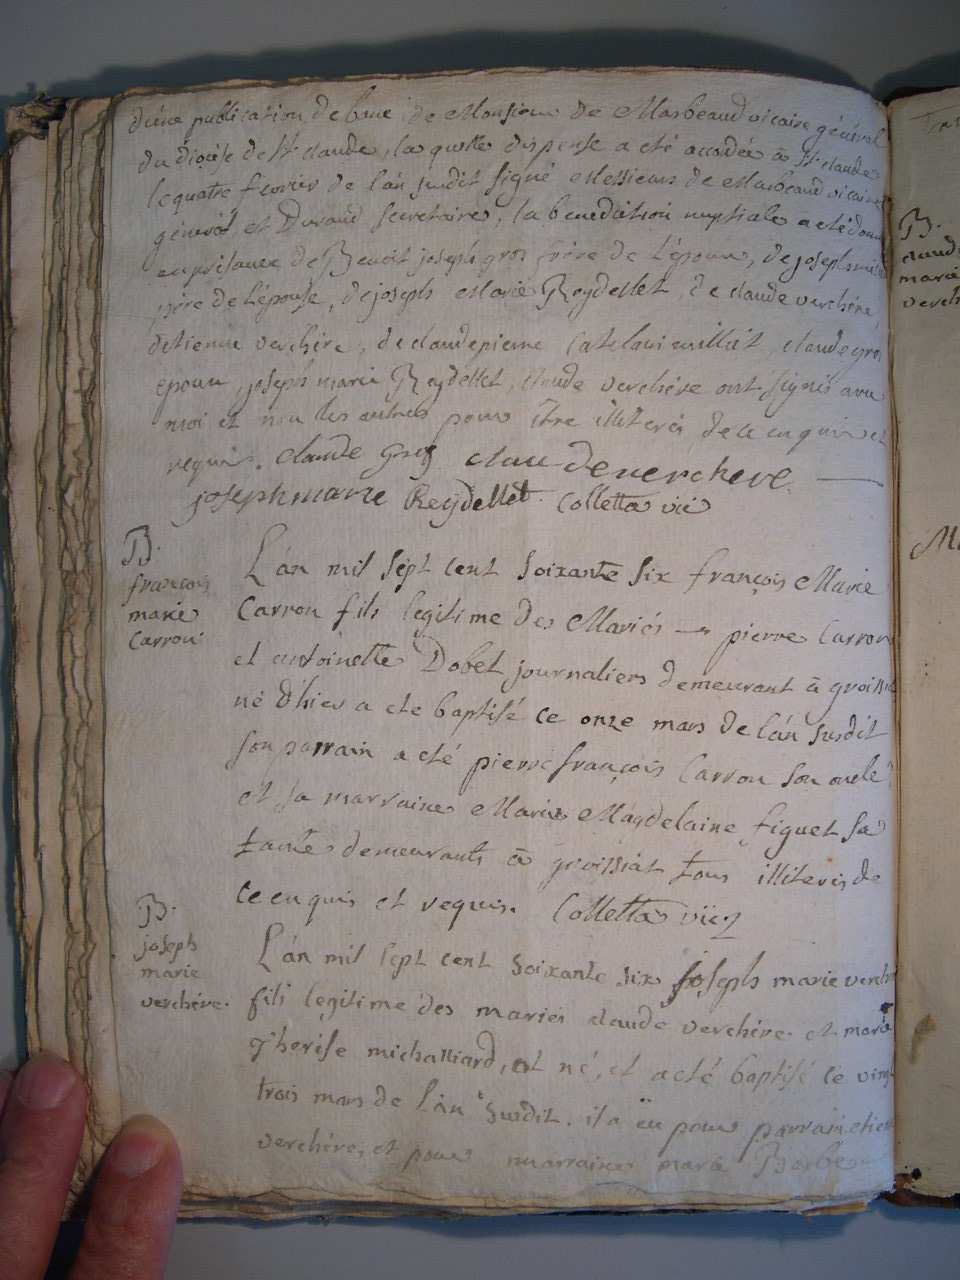 d'une publication de banc de Monsieur de Marbeaud vicaire général
du diocèse de St claude, la quelle dispense a eté accordée à St claude
le quatre fevrier de l'an susdit signé Messieurs de Marbeaud vicaire
général et Durand secretaire, la benediction nuptiale a eté donn
en présance de Benoit joseph gros frère de l'époux, de joseph
père de l'épouse, de joseph Marie Reydellet, de claude verchére,
detienne verchére, de claude pierre vuillat, claude gros
epoux, joseph marie Reydellet, claude verchére ont signés avec
moi et non les autres pour être illiterés de ce enquis et
requis. claude Gros claudeverchere
josephmarie Reÿdellet. Colletta vic
B.
françois
marie
Carron.
L'an mil sept cent soixante six françois Marie
Carron fils legitime des Mariés pierre Carron
et antoinette Dobet journaliers demeurant à groissia
né d'hier a eté baptisé ce onze mars de l'an susdit
son parrain a eté pierre françois Carron son oncle
et sa marraine Marie Magdelaine figuet sa
tante demeurants à groissiat tous illiterés de
ce enquis et requis. Colletta vic
B.
joseph
marie
verchére.
L'an mil sept cent soixante six joseph marie verch
fils legitime des mariés claude verchére et marie
Therese michalliard, est né, et a eté baptisé ce vingt
trois mars de l'an susdit. il a eu pour parrain etien
verchére, et pour marraine marie Barbe
B.
claud
marie
verch